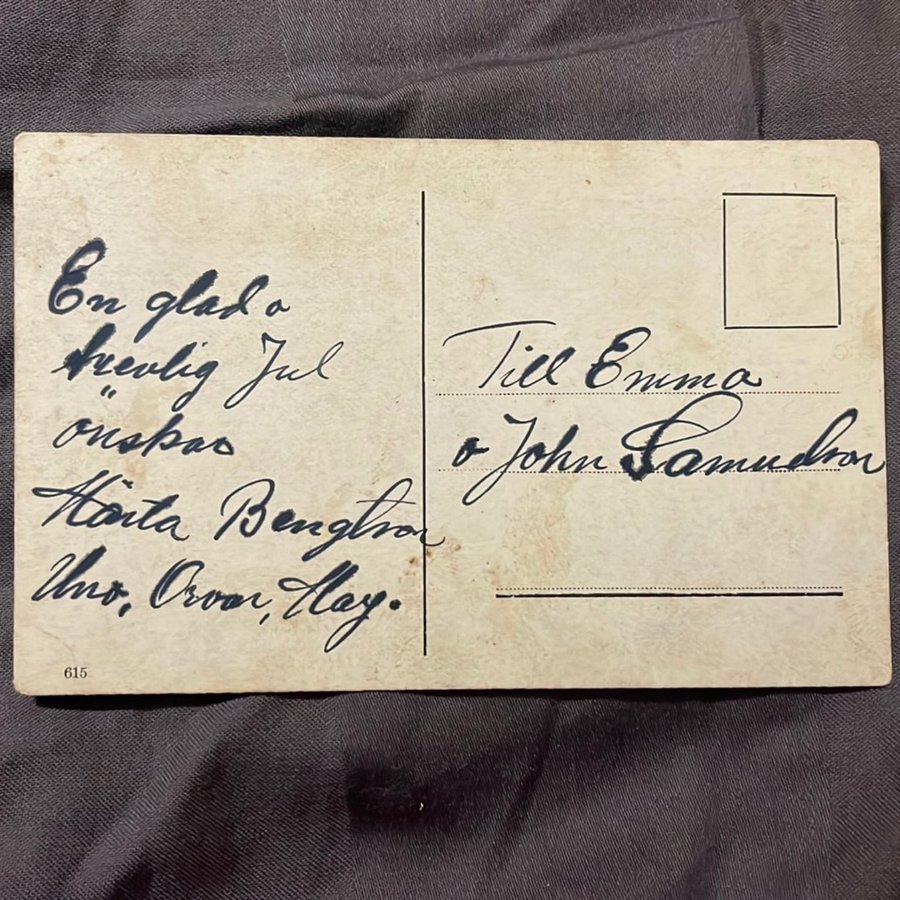 En glad o
trevlig Jul
önskas
Märta Bengtson
Uno, Orvar, May.
615
Till Emma
o John Samuelson